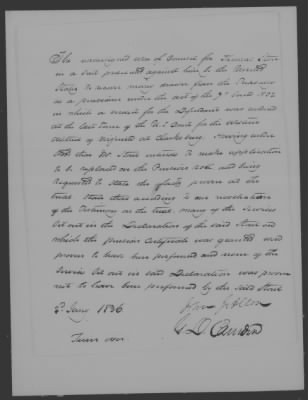 The undersigned were of Council for Thomas Stout
in a suit prosecuted against him by the United
States to recover money drawn from the Treasury
as a pensioner under the act of the 7th June 1832
in which a verdict for the Defendant was rendered
at the last term of the U.S. Court for the Western
district of Virginia at Clarksburg. Having understood
that Mr Stout intends to make application
to be replaced on the Pension role and being
requested to state the facts proven at the
trial state that according to our recollection
of the testimony on the trial many of the services
set out in the Declaration of the said Stout on
which the pension Certificate was granted were
proven to have been performed and none of the
services set out in said Declaration was proven
not to have been performed by the said Stout
2d Jany 1836
John J Allen
G D Camden
Turn over